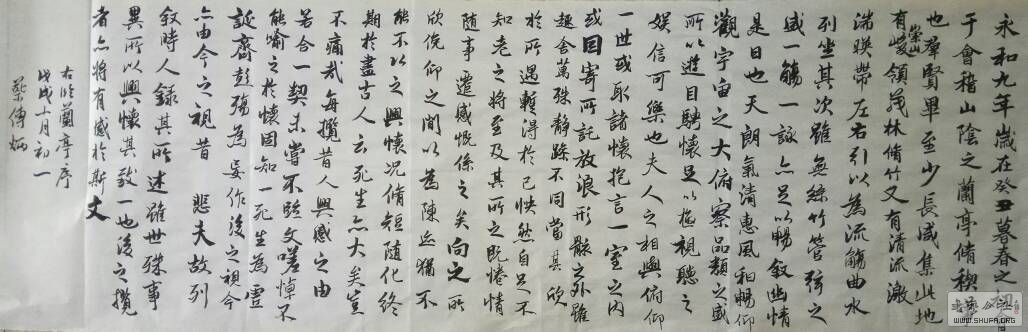 永和九年歲在癸丑暮春之初
于會稽山陰之蘭亭脩稧事
也羣賢畢至少長咸集此地
有崇山峻領茂林脩竹又有清流激
湍暎帶左右引以為流觴曲水
列坐其次雖無絲竹管弦之
盛一觴一詠亦足以暢敘幽情
是日也天朗氣清惠風和暢仰
觀宇宙之大俯察品類之盛
所以遊目騁懷足以極視聽之
娛信可樂也夫人之相與俯仰
一世或取諸懷抱言一室之內
或因寄所託放浪形骸之外雖
趣舍萬殊靜躁不同當其欣
於所遇暫得於己怏然自足不
知老之將至及其所之既惓情
隨事遷感慨係之矣向之所
欣俛仰之間以為陳迹猶不
能不以之興懷況脩短隨化終
期於盡古人云死生亦大矣豈
不痛哉每攬昔人興感之由
若合一契未嘗不臨文嗟悼不
能喻之於懷固知一死生為虛
誕齊彭殤為妄作後之視今
亦由今之視昔 悲夫故列
敘時人錄其所述雖世殊事
異所以興懷其致一也後之攬
者亦將有感於斯文
右臨蘭亭序
戊戌十月初一
蔡傳炳
WWW.SHUFA.ORG